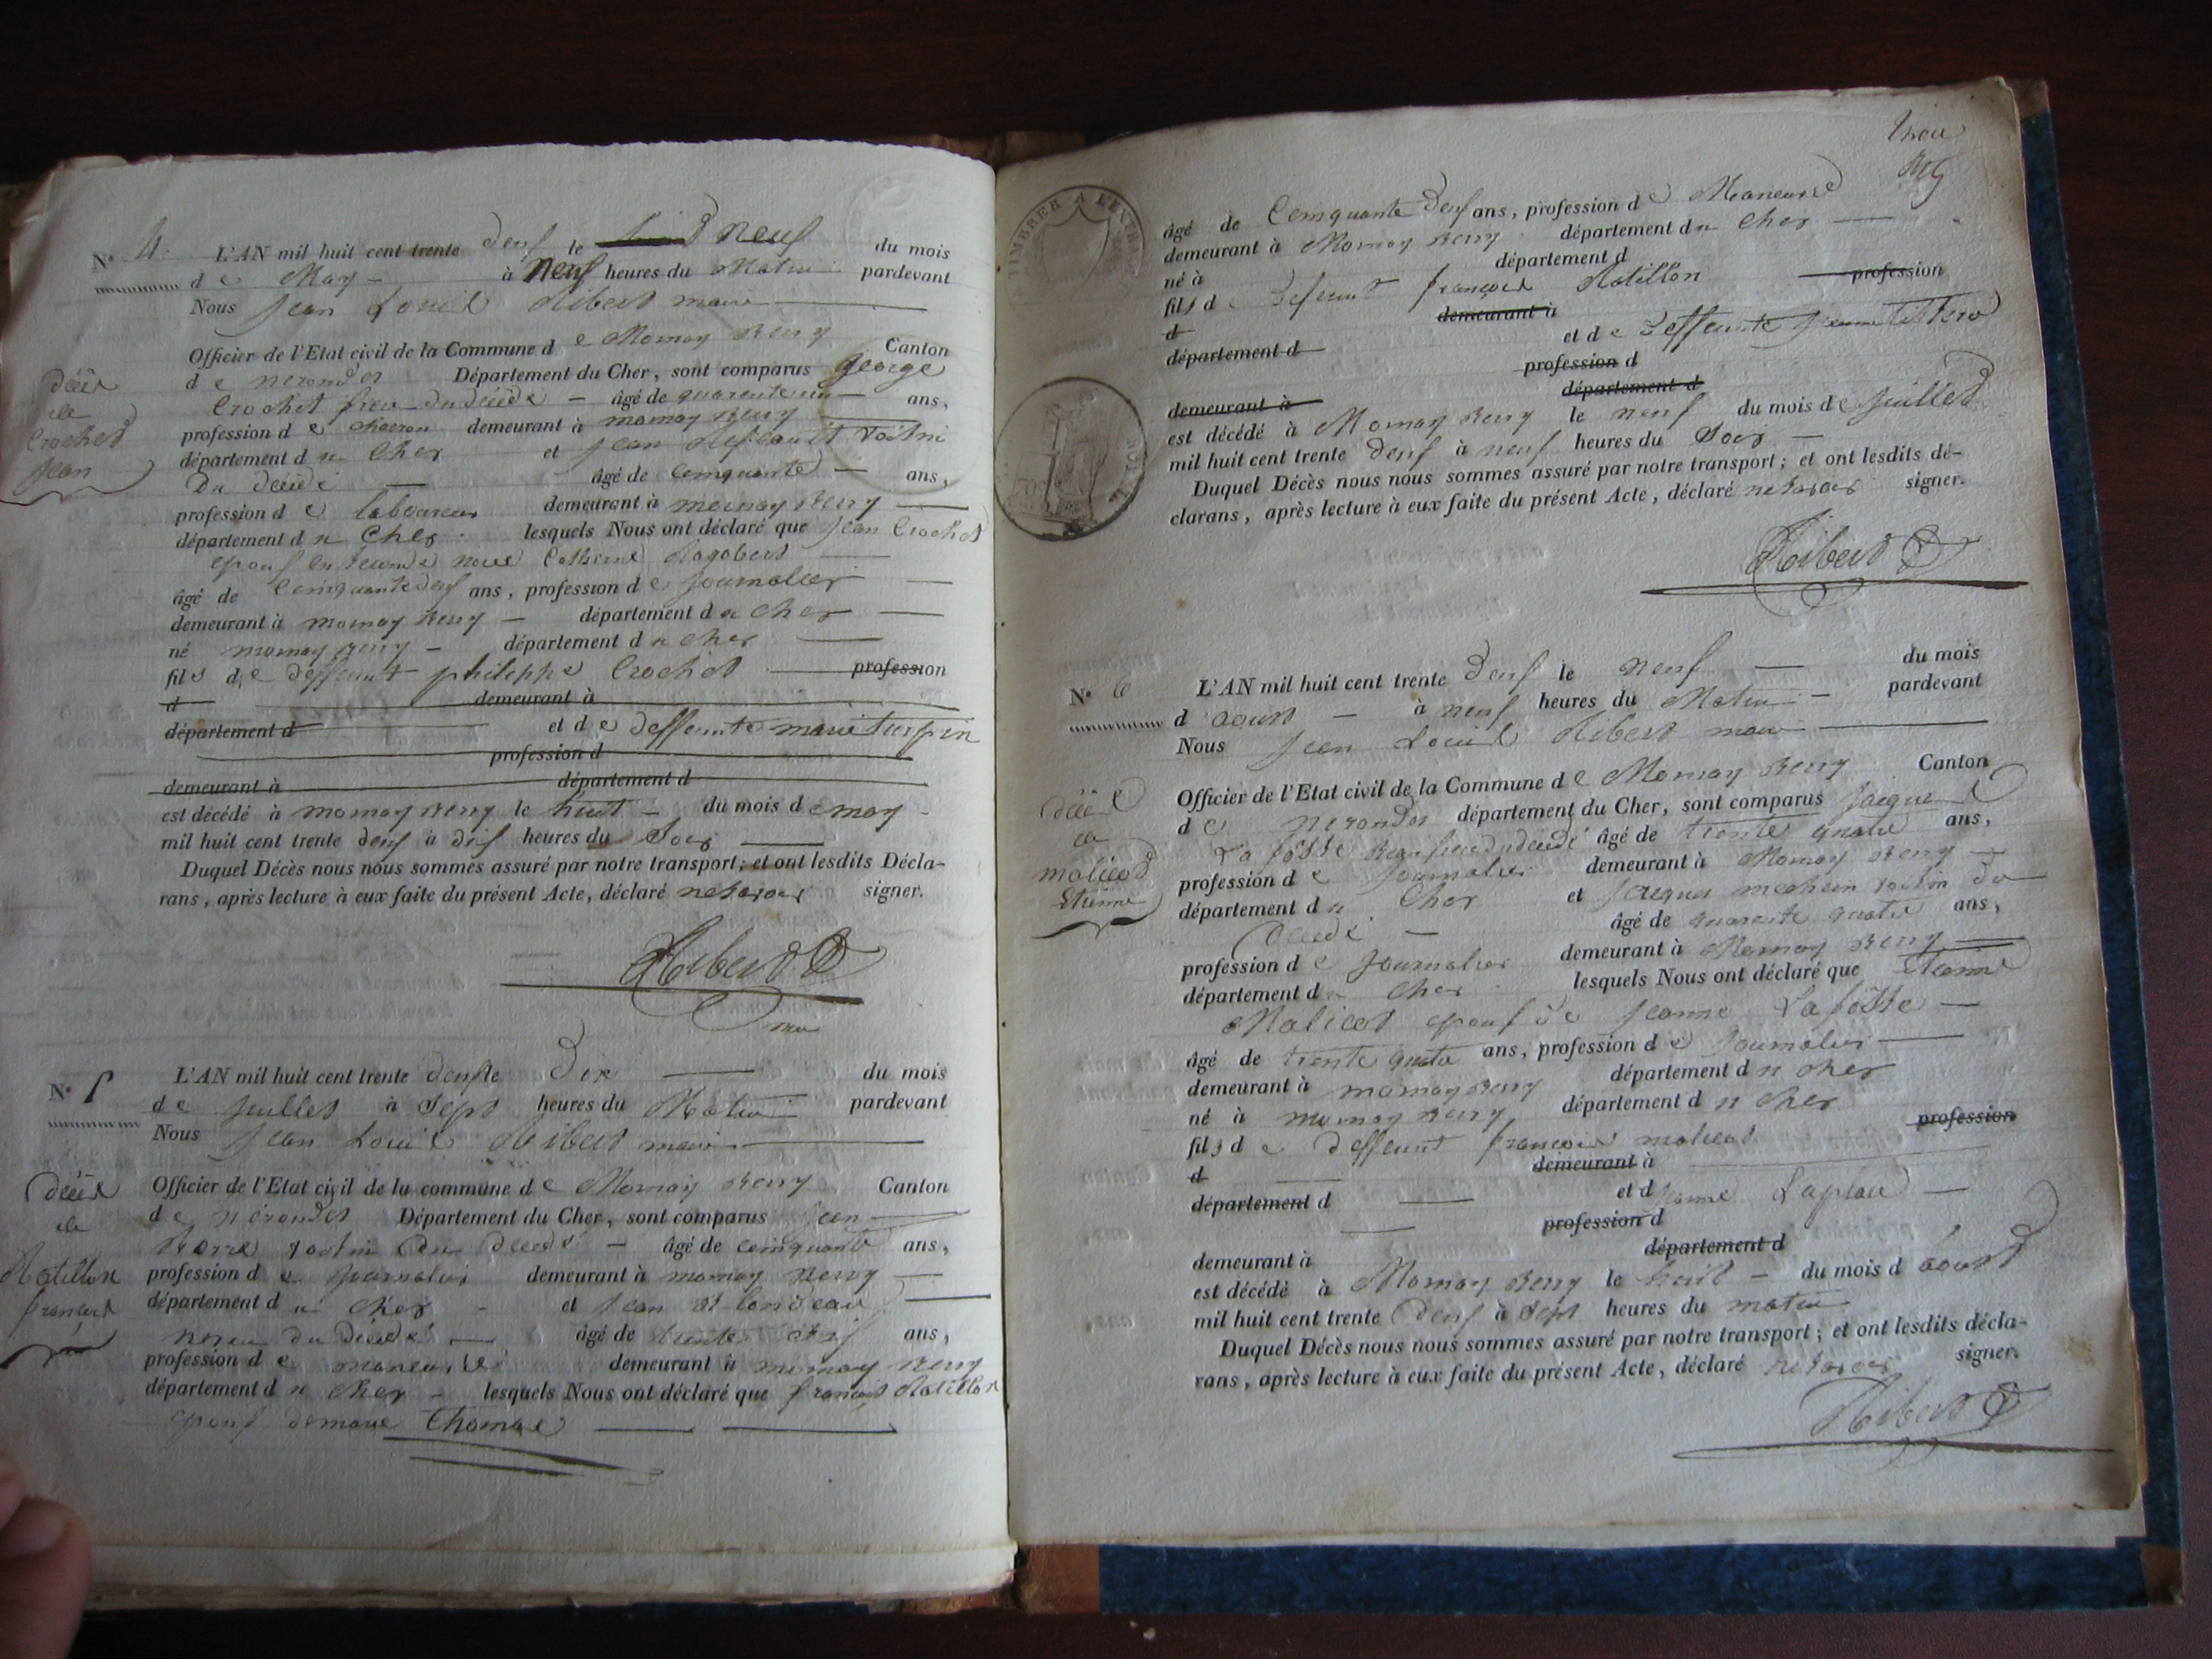 N.º 4. L'AN mil huit cent trente deux le neuf du mois
d e May à Neuf heures du Matin pardevant
Nous Jean Louis Ribert maire
Officier de l'Etat civil de la Commune d e Mornay Berry Canton
d e nerondes Département du Cher, sont comparus george
Crochet frere du décédé âgé de quarente un ans,
profession d e charon demeurant à mornay Berry
département d u Cher et Jean voisin
Du décédé âgé de Cinquante ans,
profession d e laboureur demeurant à mornay Berry
département d u Cher lesquels Nous ont déclaré que Jean Crochet
epoux en seconde noce Catherine Ragobert
âgé de Cinquante deux ans, profession d e Journalier
demeurant à mornay Berry département d u Cher
né mornay Berry département d u Cher
fils d e deffeunt philippe Crochet profession
d demeurant à
département d et d e deffeunte marie turpin
profession d
demeurant à département d
est décédé à mornay Berry le huit du mois d e may
mil huit cent trente deux à dix heures du Soir
Duquel Décès nous nous sommes assuré par notre transport; et ont lesdits Décla-
rans, après lecture à eux faite du présent Acte, déclaré ne savoir signer.
décès
de
Crochet
Jean
Ribert
N.º 5 L'AN mil huit cent trente deux le Dix du mois
d e Juillet à Sept heures du Matin pardevant
Nous Jean Louis Ribert maire
Officier de l'Etat civil de la commune d e Mornay Berry Canton
d e nerondes Département du Cher, sont comparus Jean
voisin Du décédé âgé de cinquante ans,
profession d e Journalier demeurant à mornay Berry
département d u Cher et Jean
neveu du Décédé âgé de trente ans,
profession d e maneuvre demeurant à mornay Berry
département d u Cher lesquels Nous ont déclaré que françois Ratillon
epoux de marie Thomas
décès
de
Ratillon
françois
âgé de Cinquante deux ans, profession d e Maneuvre
demeurant à Mornay Berry département d u Cher
né à département d
fils d e Defeunt françois Ratillon profession
d demeurant à
département d et d e Deffeunte Jeanne
profession d
demeurant à département d
est décédé à Mornay Berry le neuf du mois d e Juillet
mil huit cent trente deux à neuf heures du Soir
Duquel Décès nous nous sommes assuré par notre transport; et ont lesdits dé-
clarans, après lecture à eux faite du présent Acte, déclaré ne savoir signer.
TIMBRER A L'EXTR
Ribert
N.º 6 L'AN mil huit cent trente deux le neuf du mois
d aoust à neuf heures du Matin pardevant
Nous Jean Louis Ribert maire
Officier de l'Etat civil de la Commune d e Mornay Berry Canton
d e Nerondes département du Cher, sont comparus Jacques
La fosse Beaufrere du décédé âgé de trente quatre ans,
profession d e Journalier demeurant à Mornay Berry
département d u Cher et Jacques mechein voisin du
décédé âgé de quarente quatre ans,
profession d e Journalier demeurant à Mornay Berry
département d u Cher lesquels Nous ont déclaré que Etienne
Malicot epoux de Jeanne Lafosse
âgé de trente quatre ans, profession d e Journalier
demeurant à mornay Berry département d u Cher
né à mornay Berry département d u Cher
fils d e deffeunt françois malicot profession
d demeurant à
département d et d Jeanne
profession d
demeurant à département d
est décédé à Mornay Berry le huit du mois d aoust
mil huit cent trente deux à Sept heures du matin
Duquel Décès nous nous sommes assuré par notre transport; et ont lesdits décla-
rans, après lecture à eux faite du présent Acte, déclaré ne savoir signer.
décès
de
malicot
Etienne
Ribert